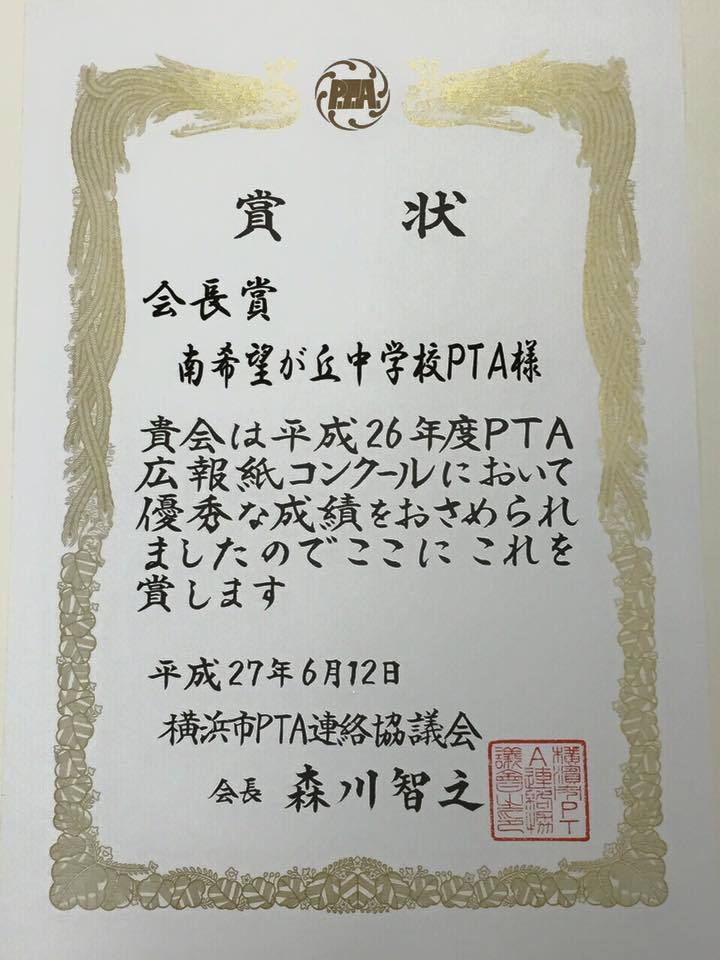 P.T.A.
賞状
会長賞
南希望が丘中学校PTA様
貴会は平成26年度PTA
広報紙コンクールにおいて
優秀な成績をおさめられ
ましたのでここにこれを
賞します
平成27年6月12日
横浜市PTA連絡協議会
会長 森川智之
横濱市PT
A連絡協
議會之印